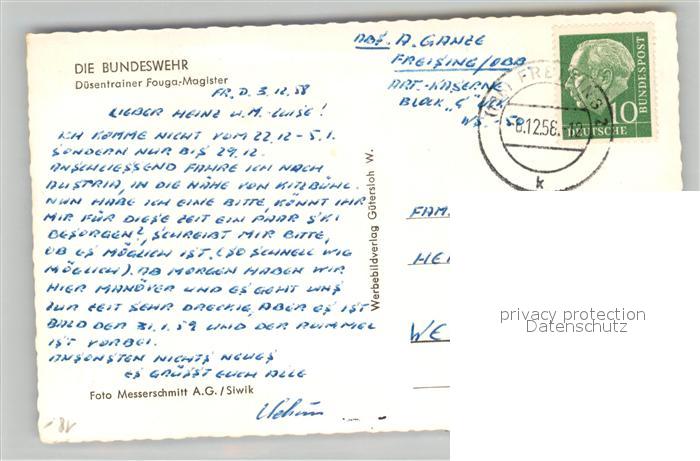 DIE BUNDESWEHR
Düsentrainer Fouga-Magister
FR, D. 3.12.58
LIEBER HEINZ U. M.-LUISE!
ICH KOMME NICHT VOM 22.12-5.1.
SONDERN NUR BIS 29.12.
ANSCHLIESSEND FAHRE ICH NACH
AUSTRIA, IN DIE NÄHE VON KITZBÜHL.
NUN HABE ICH EINE BITTE, KÖNNT IHR
MIR FÜR DIESE ZEIT EIN PAAR SKI
BESORGEN?, SCHREIBT MIR BITTE,
OB ES MÖGLICH IST. (SO SCHNELL WIE
MÖGLICH). AB MORGEN HABEN WIR
HIER MANÖVER UND ES GEHT UNS
ZUR ZEIT SEHR DRECKIG, ABER ES IST
BALD DER 31.1.59 UND DER RUMMEL
IST VORBEI.
ANSONSTEN NICHTS NEUES
ES GRÜSST EUCH ALLE
Foto Messerschmitt A.G./Siwik
Werbebildverlag Gütersloh W.
ABS. A. GANZE
FREISING/OBB
ART.-KASERNE
BLOCK "G"
FREISING 2
.12.58.
k
10
DEUTSCHE
BUNDESPOST
FAM
HEI
WE
privacy protection
Datenschutz